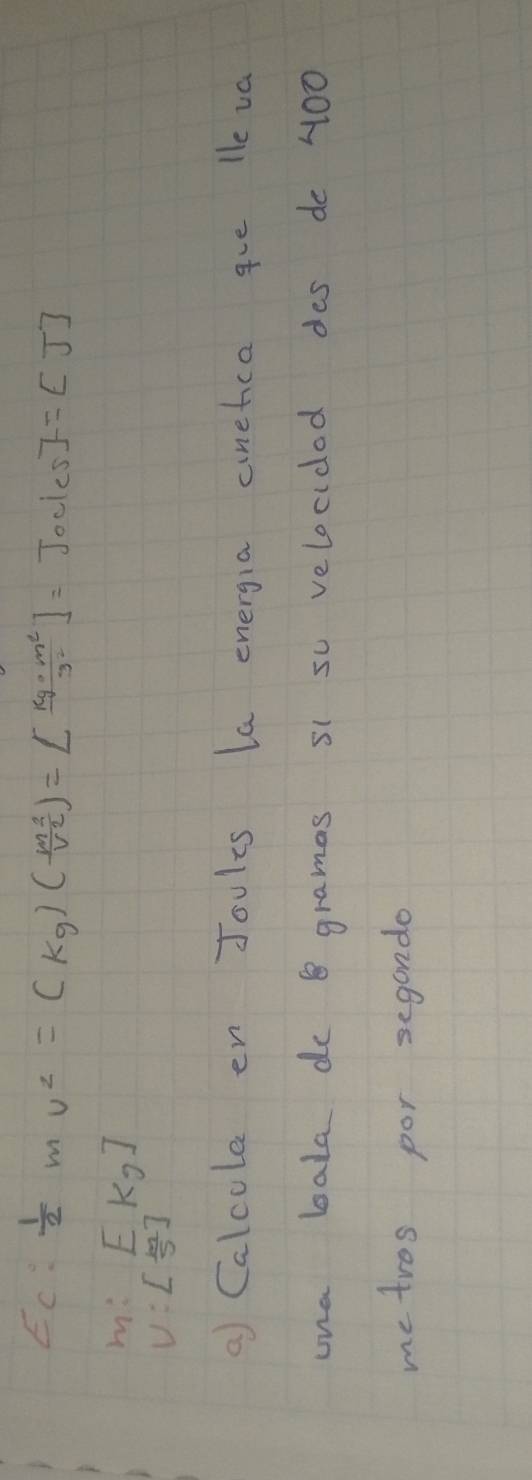 Ec: 1/2 m v² = (Kg) (m²/v²) = [Kg·m²/s²] = Joules] = [J]
m: [Kg]
v: [m/s]
a) Calcula en Joules la energia cinetica que lleva
una bala de gramos si su velocidad des de 400
metros por segondo